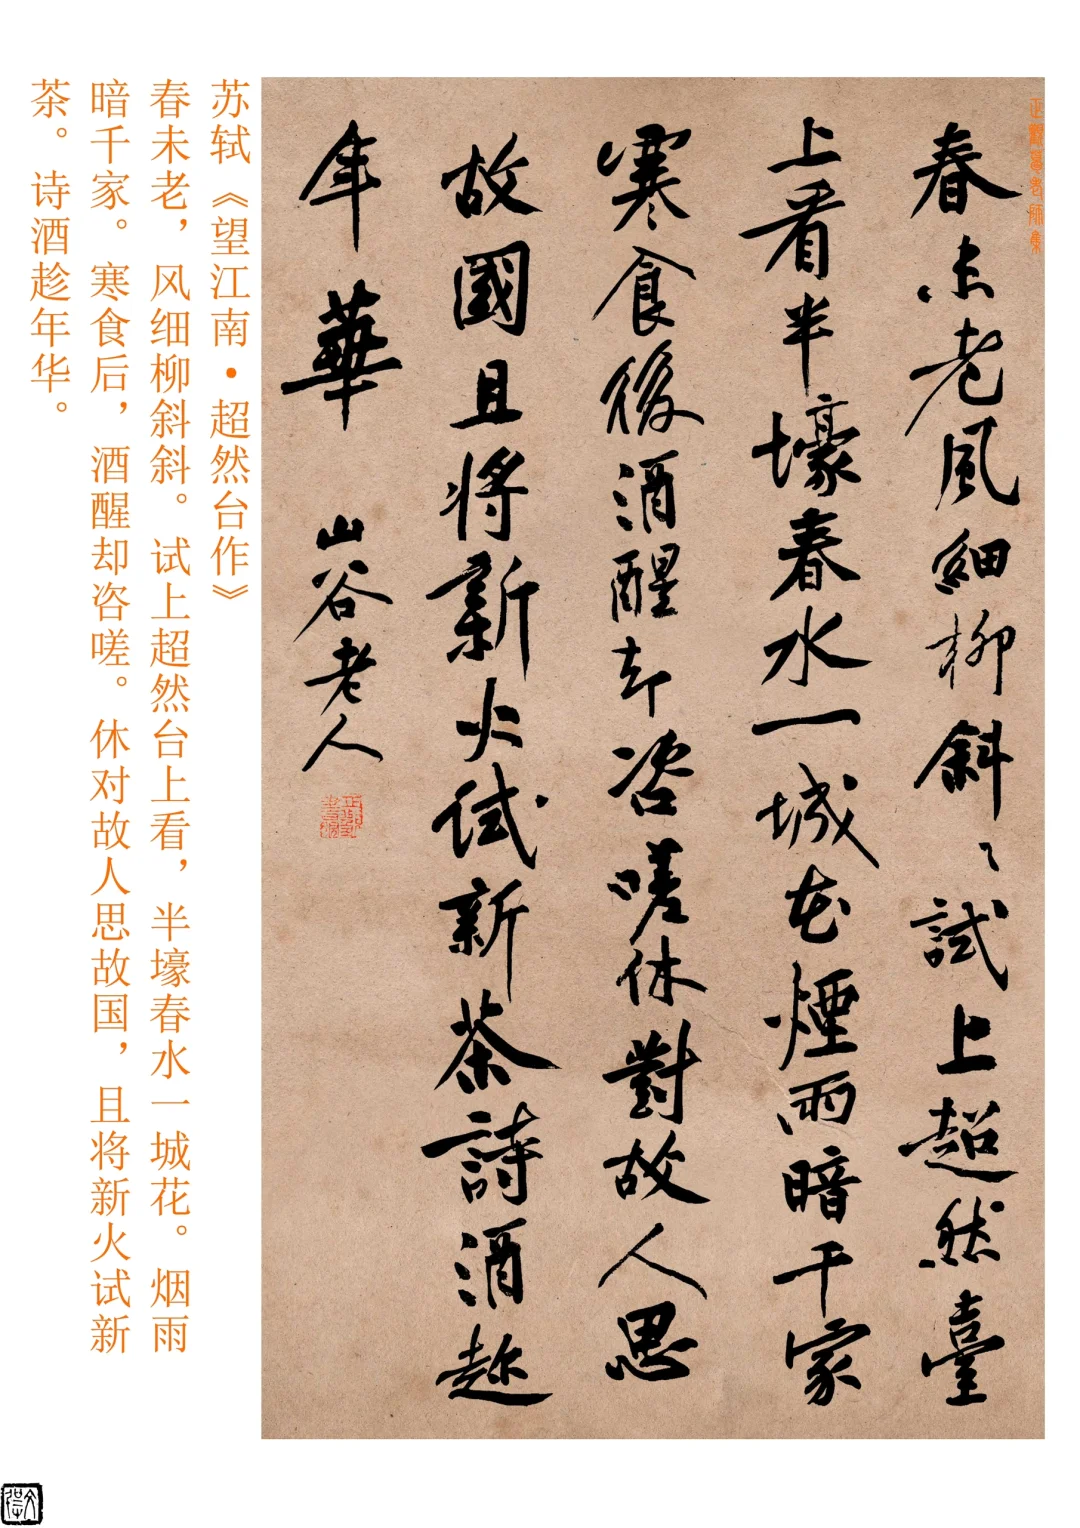 春未老風細柳斜〻試上超然臺
上看半壕春水一城花煙雨暗千家
寒食後酒醒却咨嗟休對故人思
故國且将新火試新茶詩酒趂
年華
山谷老人
苏轼《望江南·超然台作》
春未老，风细柳斜斜。试上超然台上看，半壕春水一城花。烟雨
暗千家。寒食后，酒醒却咨嗟。休对故人思故国，且将新火试新
茶。诗酒趁年华。